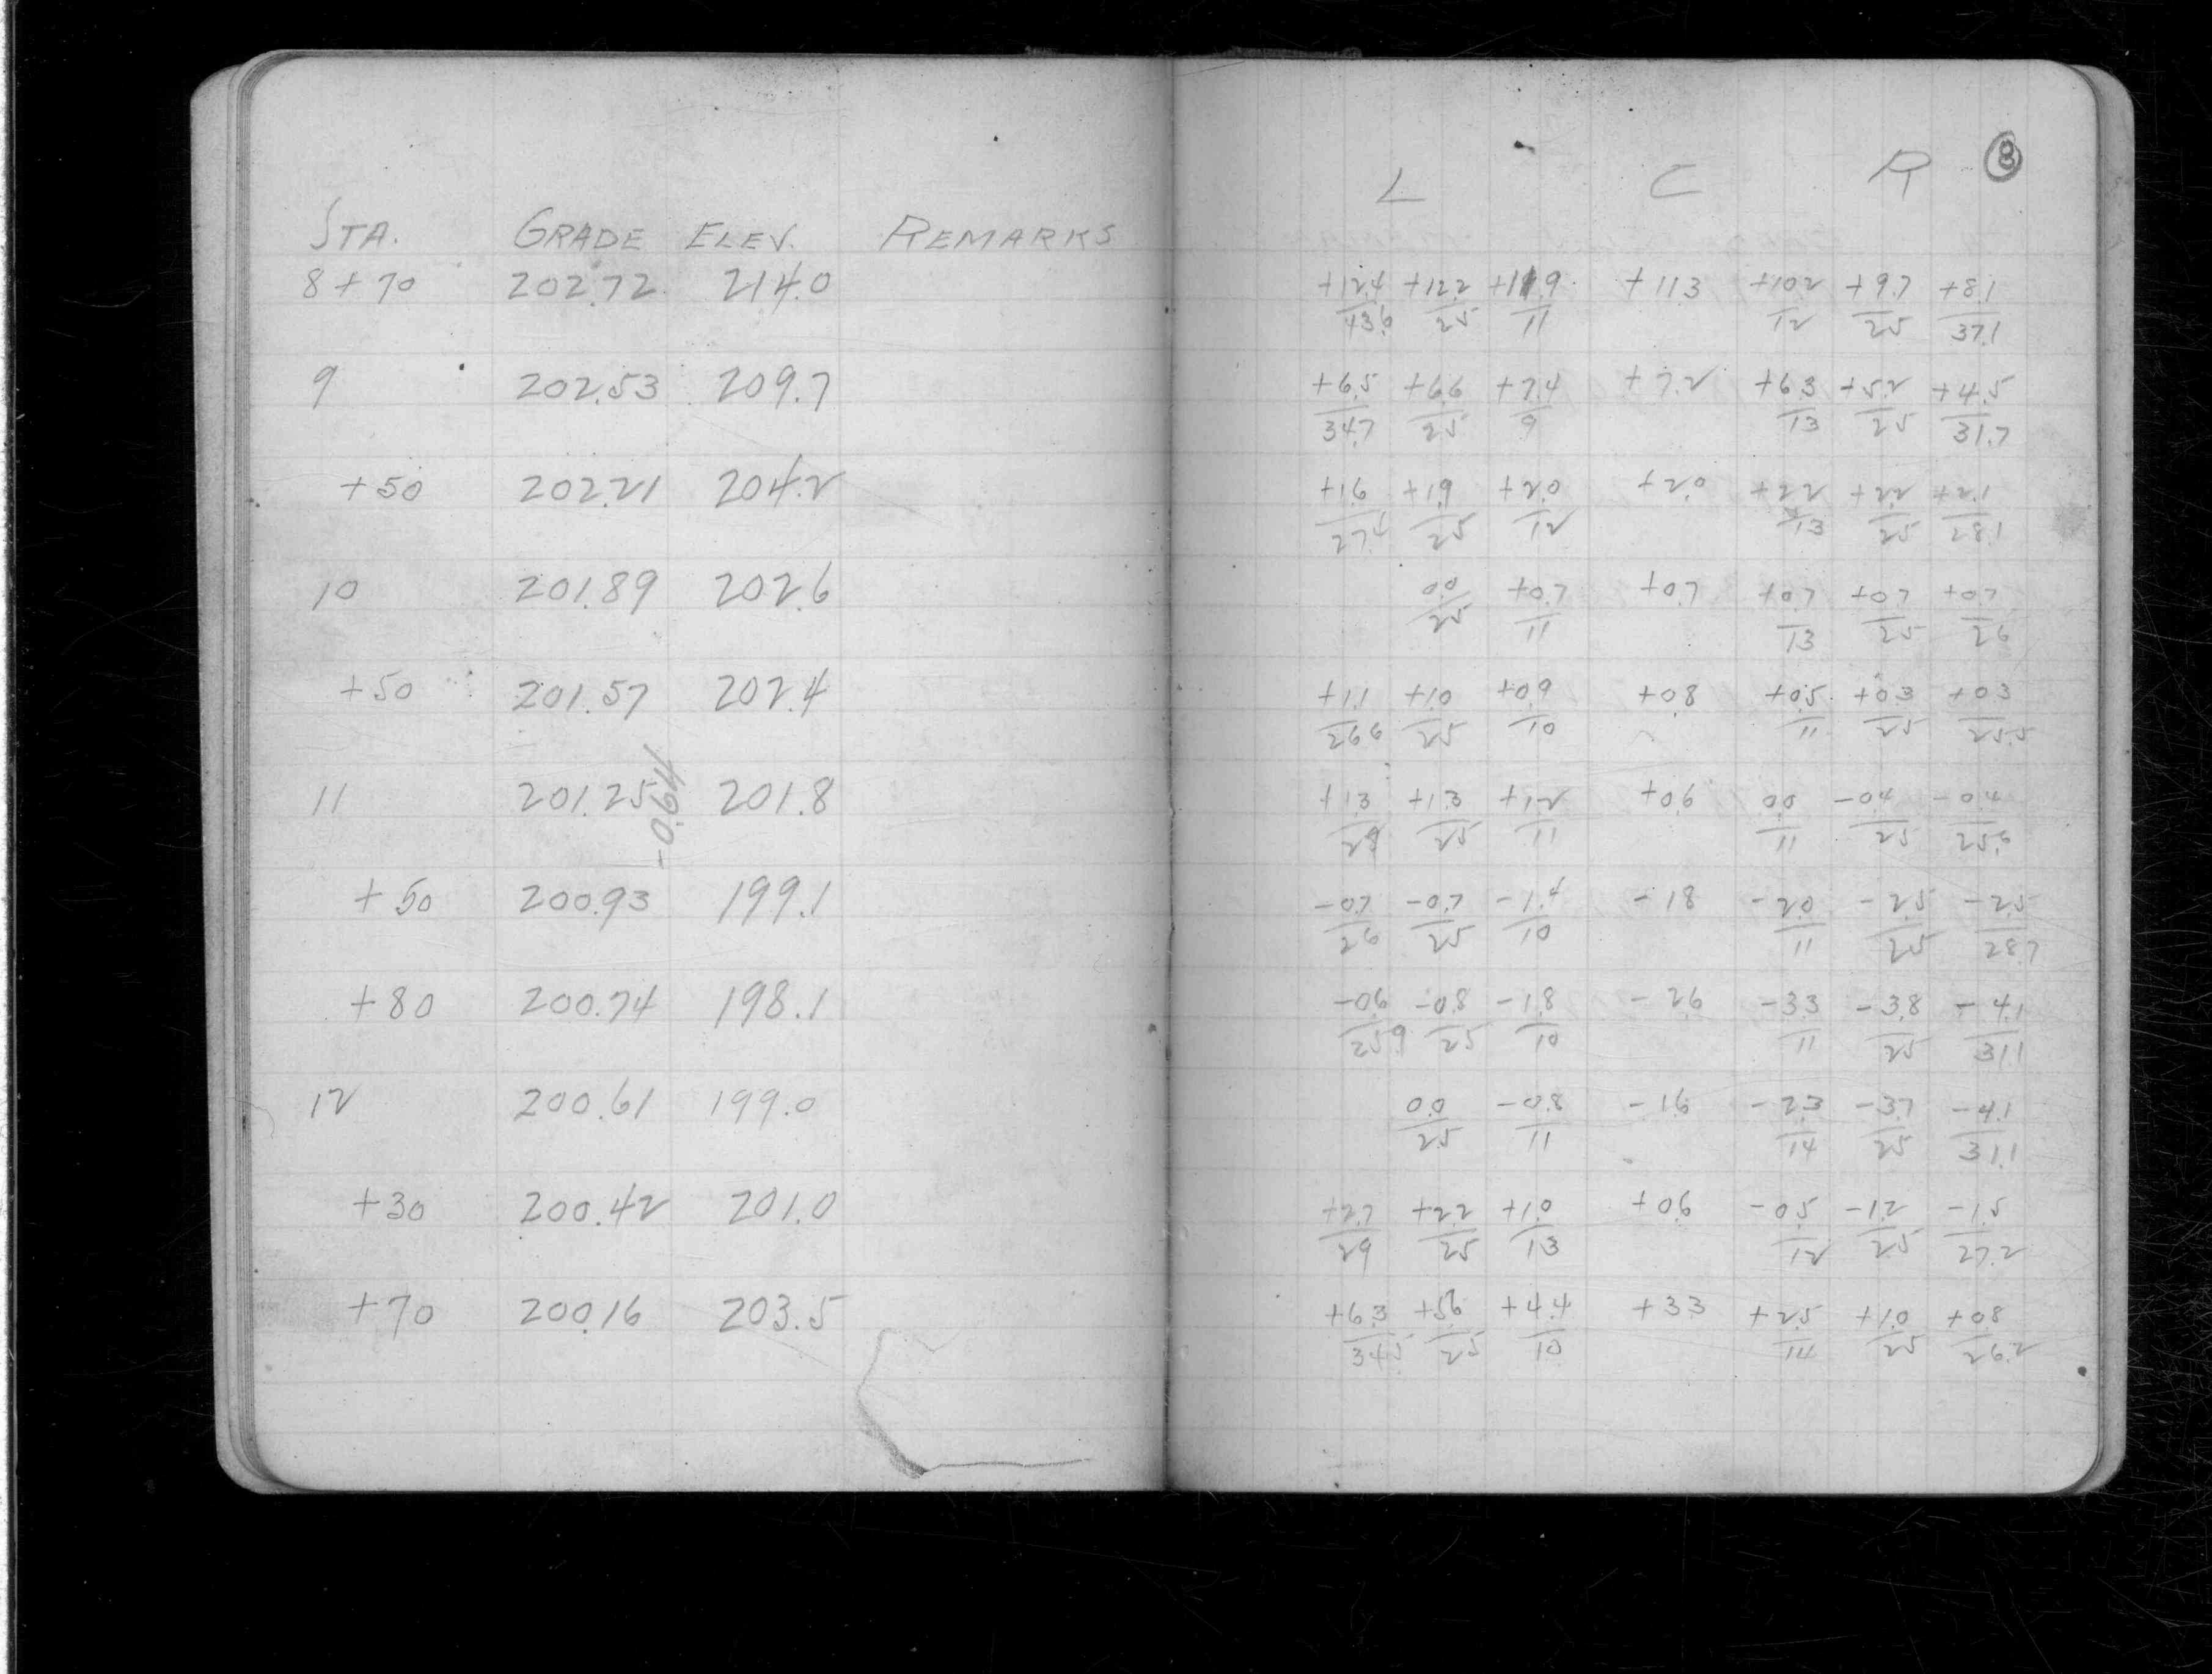 STA. GRADE ELEV. REMARKS
8+70 202.72 214.0
9 202.53 209.7
+50 202.21 204.2
10 201.89 202.6
+50 201.57 202.4
11 201.25 201.8
+50 200.93 199.1
+80 200.74 198.1
12 200.61 199.0
+30 200.42 201.0
+70 200.16 203.5
8
L C R
+12.4 +12.2 +11.9 +11.3 +10.2 +9.7 +8.1
43.6 25 11 12 25 37.1
+6.5 +6.6 +7.4 +7.2 +6.3 +5.2 +4.5
34.7 25 9 13 25 31.7
+1.6 +1.9 +2.0 +2.0 +2.2 +2.2 +2.1
27.4 25 12 13 25 28.1
0.0 +0.7 +0.7 +0.7 +0.7 +0.7
25 11 13 25 26
+1.1 +1.0 +0.9 +0.8 +0.5 +0.3 +0.3
26.6 25 10 11 25 25.5
+1.3 +1.3 +1.2 +0.6 0.0 -0.4 -0.4
25 11 11 25 25.6
-0.7 -0.7 -1.4 -1.8 -2.0 -2.5 -2.5
26 25 10 11 25 28.7
-0.6 -0.8 -1.8 -2.6 -3.3 -3.8 -4.1
25.9 25 10 11 25 31.1
0.0 -0.8 -1.6 -2.3 -3.7 -4.1
25 11 14 25 31.1
+2.7 +2.2 +1.0 +0.6 -0.5 -1.2 -1.5
29 25 13 12 25 27.2
+6.3 +5.6 +4.4 +3.3 +2.5 +1.0 +0.8
34.5 25 10 14 25 26.2